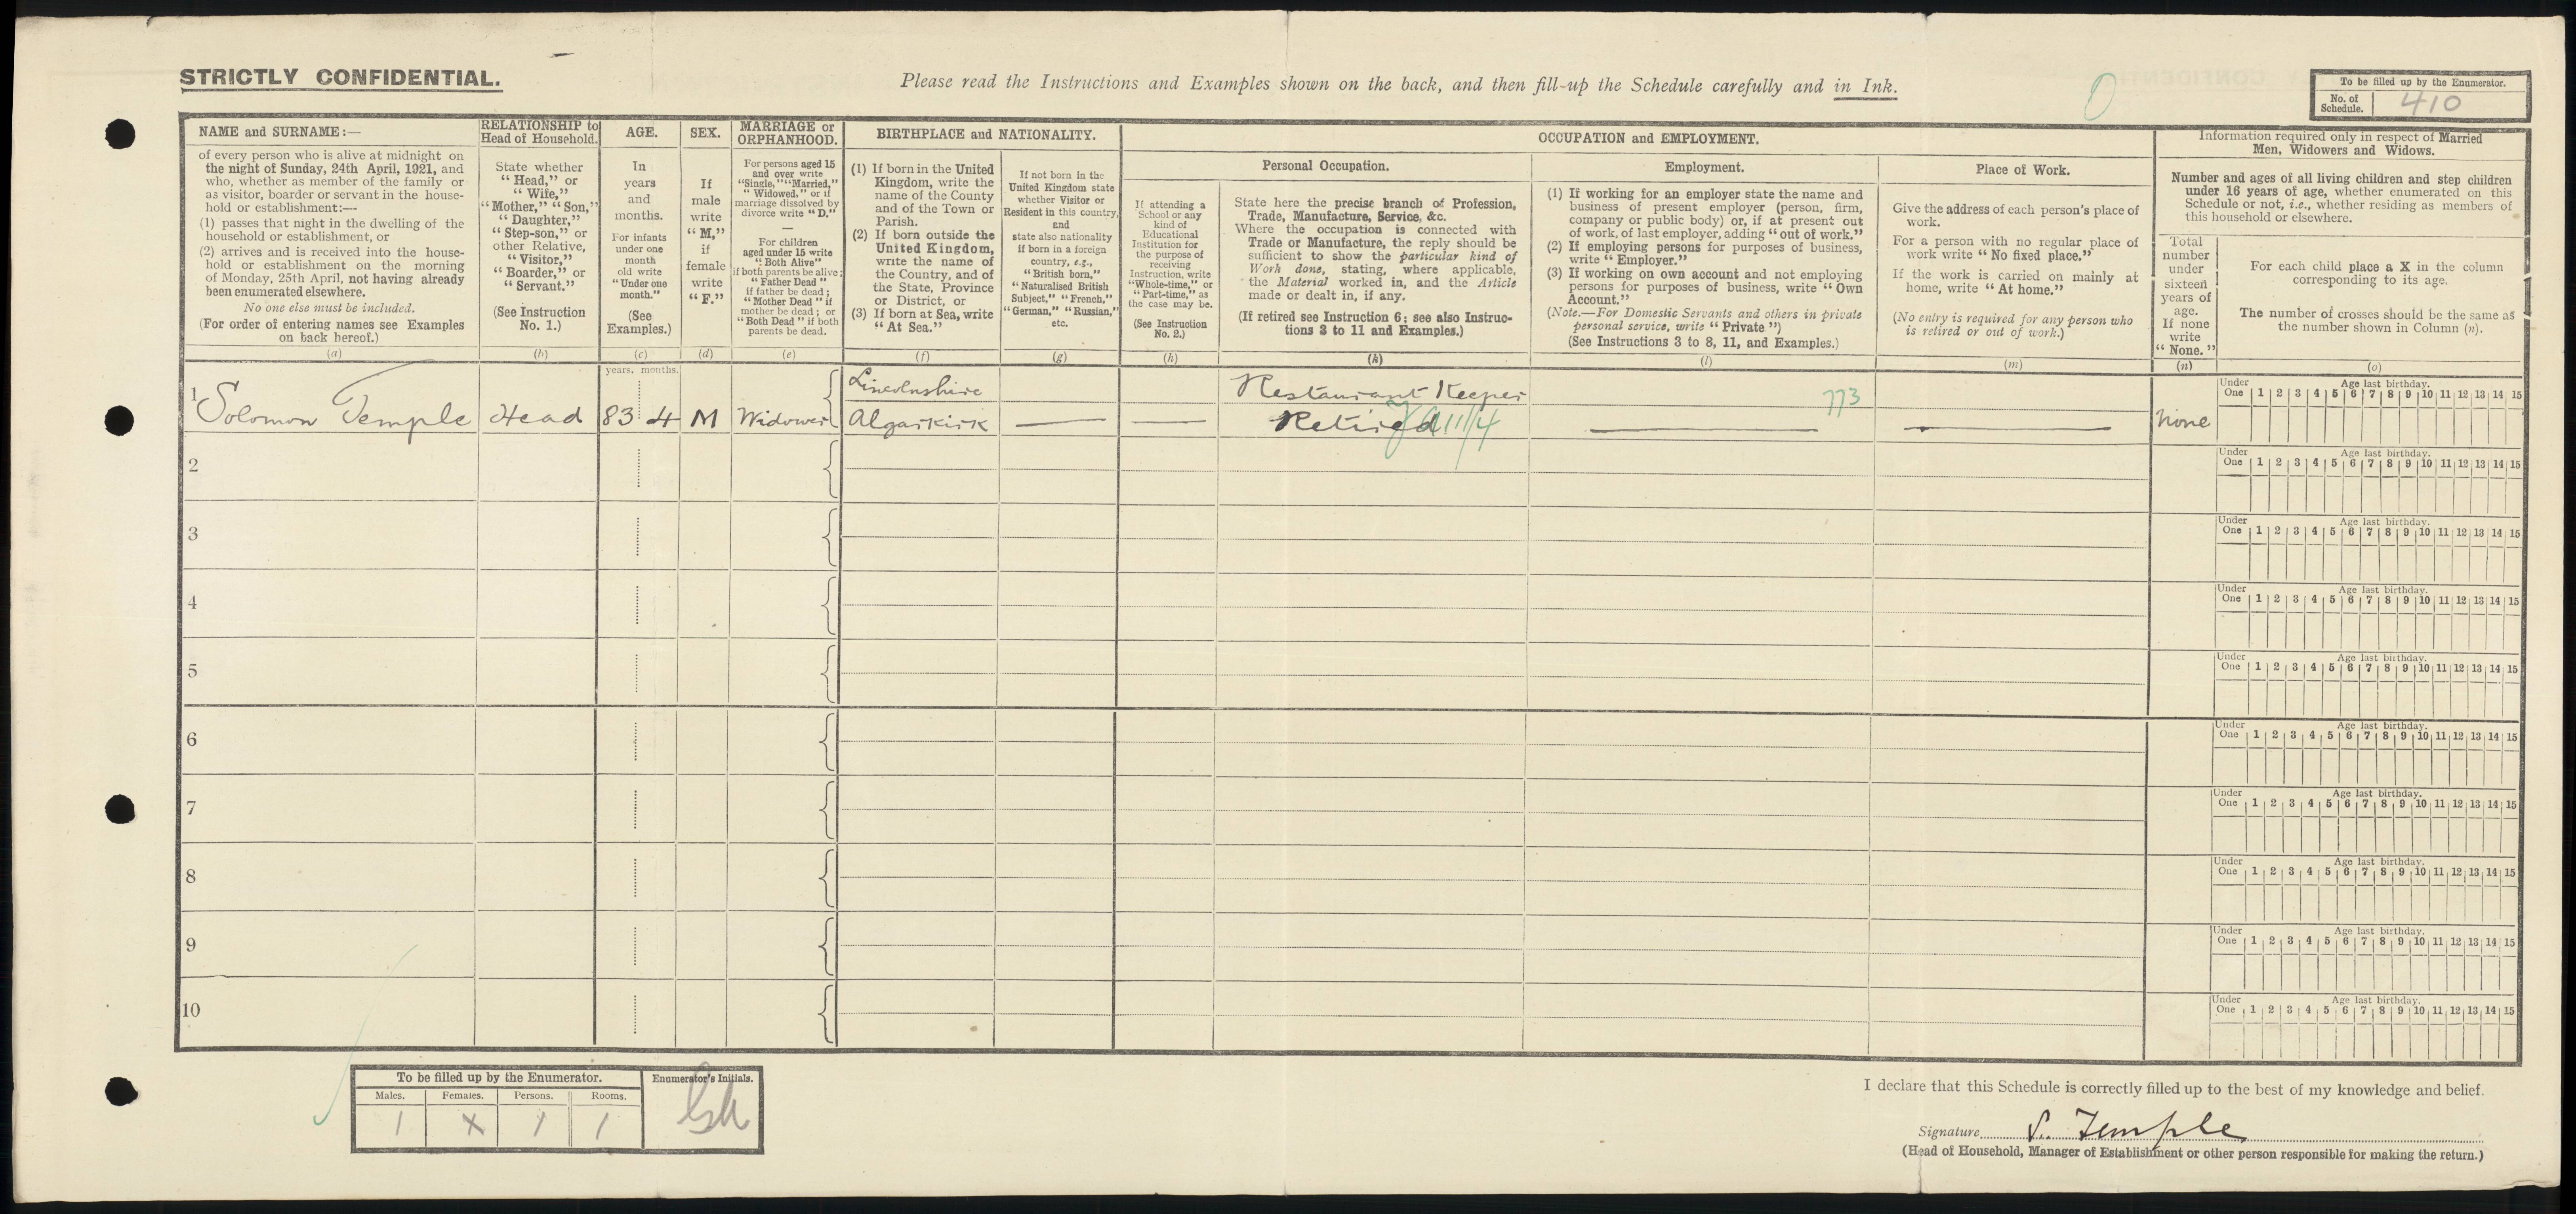 STRICTLY CONFIDENTIAL.
Please read the Instructions and Examples shown on the back, and then fill-up the Schedule carefully and in Ink.
To be filled up by the Enumerator.
No. of Schedule. 410
NAME and SURNAME:—
of every person who is alive at midnight on
the night of Sunday, 24th April, 1921, and
who, whether as member of the family or
as visitor, boarder or servant in the house-
hold or establishment:—
(1) passes that night in the dwelling of the
household or establishment, or
(2) arrives and is received into the house-
hold or establishment on the morning
of Monday, 25th April, not having already
been enumerated elsewhere.
No one else must be included.
(For order of entering names see Examples
on back hereof.)
(a)
RELATIONSHIP to
Head of Household.
State whether
"Head," or
"Wife,"
"Mother," "Son,"
"Daughter,"
"Step-son," or
other Relative,
"Visitor,"
"Boarder," or
"Servant."
(See Instruction
No. 1.)
(b)
AGE.
In
years
and
months.
For infants
under one
month
old write
"Under one
month."
(See
Examples.)
(c)
SEX.
If
male
write
"M,"
if
female
write
"F."
(d)
MARRIAGE or
ORPHANHOOD.
For persons aged 15
and over write
"Single," "Married,"
"Widowed," or if
marriage dissolved by
divorce write "D."
—
For children
aged under 15 write
"Both Alive"
if both parents be alive;
"Father Dead"
if father be dead;
"Mother Dead" if
mother be dead; or
"Both Dead" if both
parents be dead.
(e)
BIRTHPLACE and NATIONALITY.
(1) If born in the United
Kingdom, write the
name of the County
and of the Town or
Parish.
(2) If born outside the
United Kingdom,
write the name of
the Country, and of
the State, Province
or District, or
(3) If born at Sea, write
"At Sea."
(f)
If not born in the
United Kingdom state
whether Visitor or
Resident in this country,
and
state also nationality
if born in a foreign
country, e.g.,
"British born,"
"Naturalised British
Subject," "French,"
"German," "Russian,"
etc.
(g)
OCCUPATION and EMPLOYMENT.
If attending a
School or any
kind of
Educational
Institution for
the purpose of
receiving
Instruction, write
"Whole-time," or
"Part-time," as
the case may be.
(See Instruction
No. 2.)
(h)
Personal Occupation.
State here the precise branch of Profession,
Trade, Manufacture, Service, &c.
Where the occupation is connected with
Trade or Manufacture, the reply should be
sufficient to show the particular kind of
Work done, stating, where applicable,
the Material worked in, and the Article
made or dealt in, if any.
(If retired see Instruction 6; see also Instruc-
tions 3 to 11 and Examples.)
(k)
Employment.
(1) If working for an employer state the name and
business of present employer (person, firm,
company or public body) or, if at present out
of work, of last employer, adding "out of work."
(2) If employing persons for purposes of business,
write "Employer."
(3) If working on own account and not employing
persons for purposes of business, write "Own
Account."
(Note.—For Domestic Servants and others in private
personal service, write "Private")
(See Instructions 3 to 8, 11, and Examples.)
(l)
Place of Work.
Give the address of each person's place of
work.
For a person with no regular place of
work write "No fixed place."
If the work is carried on mainly at
home, write "At home."
(No entry is required for any person who
is retired or out of work.)
(m)
Information required only in respect of Married
Men, Widowers and Widows.
Number and ages of all living children and step children
under 16 years of age, whether enumerated on this
Schedule or not, i.e., whether residing as members of
this household or elsewhere.
Total
number
under
sixteen
years of
age.
If none
write
"None."
(n)
For each child place a X in the column
corresponding to its age.
The number of crosses should be the same as
the number shown in Column (n).
(o)
years. months.
1 Solomon Temple Head 83 4 M Widower Lincolnshire
Algarkirk — — Restaurant Keeper
Retired — 773 — None
Under One Age last birthday. 1 2 3 4 5 6 7 8 9 10 11 12 13 14 15
2 Under One Age last birthday. 1 2 3 4 5 6 7 8 9 10 11 12 13 14 15
3 Under One Age last birthday. 1 2 3 4 5 6 7 8 9 10 11 12 13 14 15
4 Under One Age last birthday. 1 2 3 4 5 6 7 8 9 10 11 12 13 14 15
5 Under One Age last birthday. 1 2 3 4 5 6 7 8 9 10 11 12 13 14 15
6 Under One Age last birthday. 1 2 3 4 5 6 7 8 9 10 11 12 13 14 15
7 Under One Age last birthday. 1 2 3 4 5 6 7 8 9 10 11 12 13 14 15
8 Under One Age last birthday. 1 2 3 4 5 6 7 8 9 10 11 12 13 14 15
9 Under One Age last birthday. 1 2 3 4 5 6 7 8 9 10 11 12 13 14 15
10 Under One Age last birthday. 1 2 3 4 5 6 7 8 9 10 11 12 13 14 15
To be filled up by the Enumerator.
Males. Females. Persons. Rooms.
1 X 1 1
Enumerator's Initials.
I declare that this Schedule is correctly filled up to the best of my knowledge and belief.
Signature S. Temple
(Head of Household, Manager of Establishment or other person responsible for making the return.)